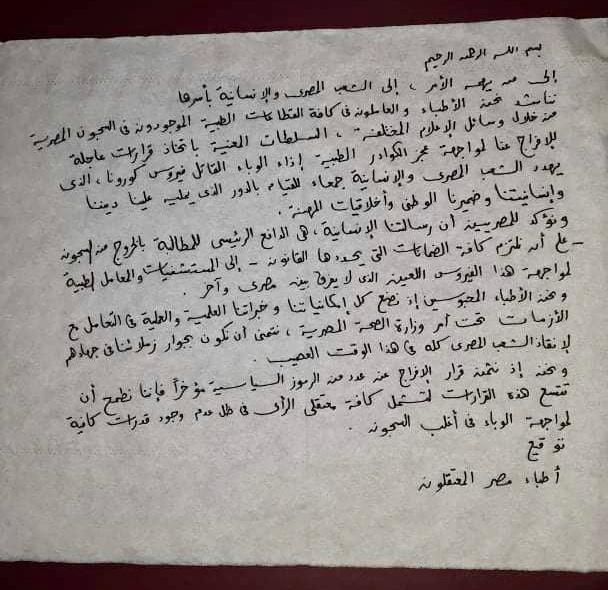 بسم الله الرحمن الرحيم
إلى من يهمه الأمر ، إلى الشعب المصرى والإنسانية بأسرها
نناشد نحن الأطباء والعاملون فى كافة القطاعات الطبية الموجودون فى السجون المصرية
من خلال وسائل الإعلام المختلفة ، السلطات المعنية باتخاذ قرارات عاجلة
للإفراج عنا لمواجهة عجز الكوادر الطبية إذاء الوباء القاتل فيروس كورونا ، الذى
يهدد الشعب المصرى والإنسانية جمعاء للقيام بالدور الذى يمليه علينا ديننا
وإنسانيتنا وضميرنا الوطنى وأخلاقيات المهنة .
ونؤكد للمصريين أن رسالتنا الإنسانية ، هى الدافع الرئيسى للمطالبة بالخروج من السجون
- على أن نلتزم كافة الضمانات التى يحددها القانون - إلى المستشفيات والمعامل الطبية
لمواجهة هذا الفيروس اللعين الذى لا يفرق بين مصرى وآخر .
ونحن الأطباء المحبوسين إذ نضع كل إمكانياتنا وخبراتنا العلمية والعملية فى التعامل مع
الأزمات تحت أمر وزارة الصحة المصرية ، نتمنى أن نكون بجوار زملائنا فى جهادهم
لإنقاذ الشعب المصرى كله فى هذا الوقت العصيب .
ونحن إذ نثمن قرار الإفراج عن عدد من الرموز السياسية مؤخراً فإننا نطمح أن
تتسع هذه القرارات لتشمل كافة معتقلى الرأى فى ظل عدم وجود قدرات كافية
لمواجهة الوباء فى أغلب السجون .
توقيع
أطباء مصر المعتقلون